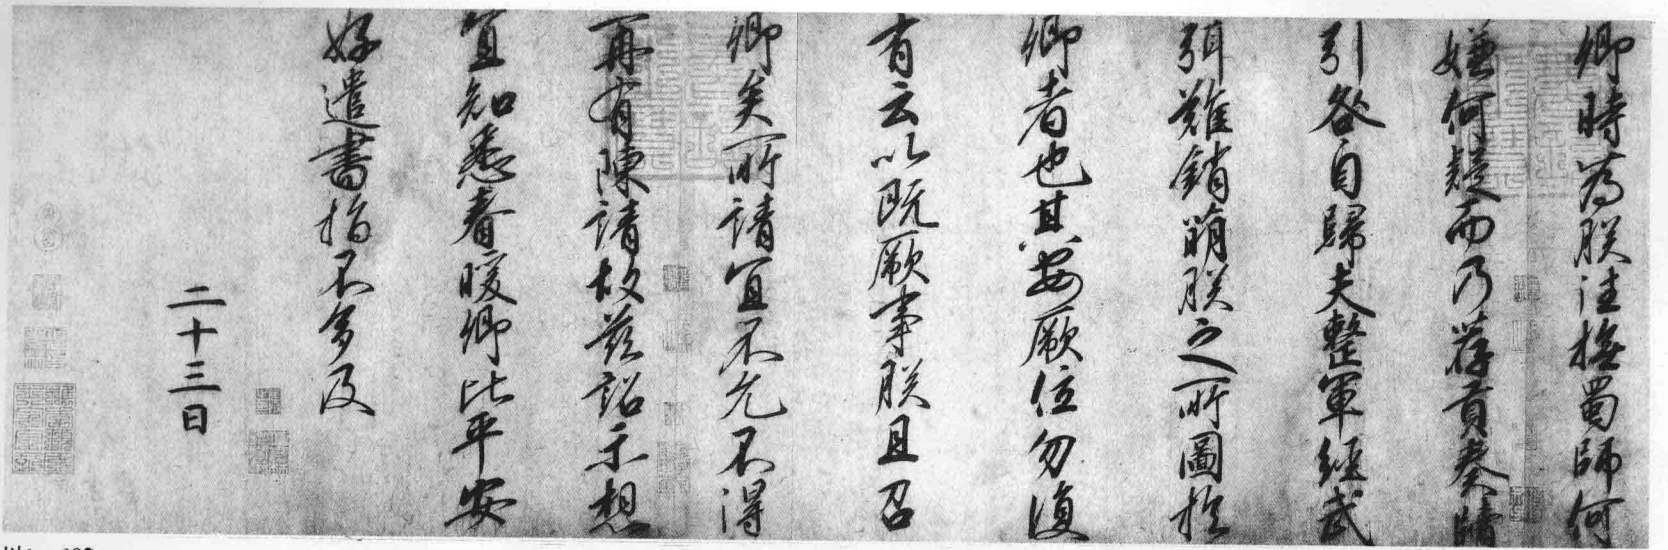 卿時為朕往撫蜀師何
嫌何疑而乃荐貢奏牘
引咎自歸夫整軍經武
弭難銷萌朕之所圖於
卿者也其安厥位勿復
有云以既厥事朕且召
卿矣所請宜不允不得
再有陳請故茲詔示想
宜知悉春暖卿比平安
好遣書指不多及
二十三日